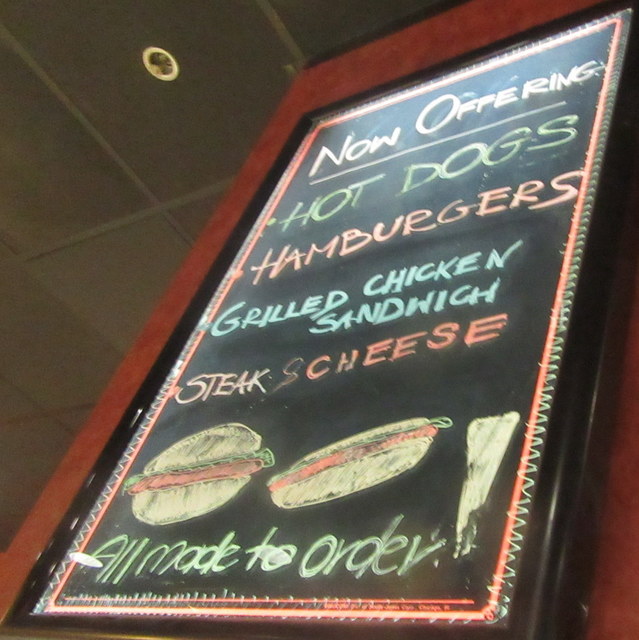 Now Offering
• Hot Dogs
• Hamburgers
• Grilled Chicken
Sandwich
• Steak & Cheese
All made to order!